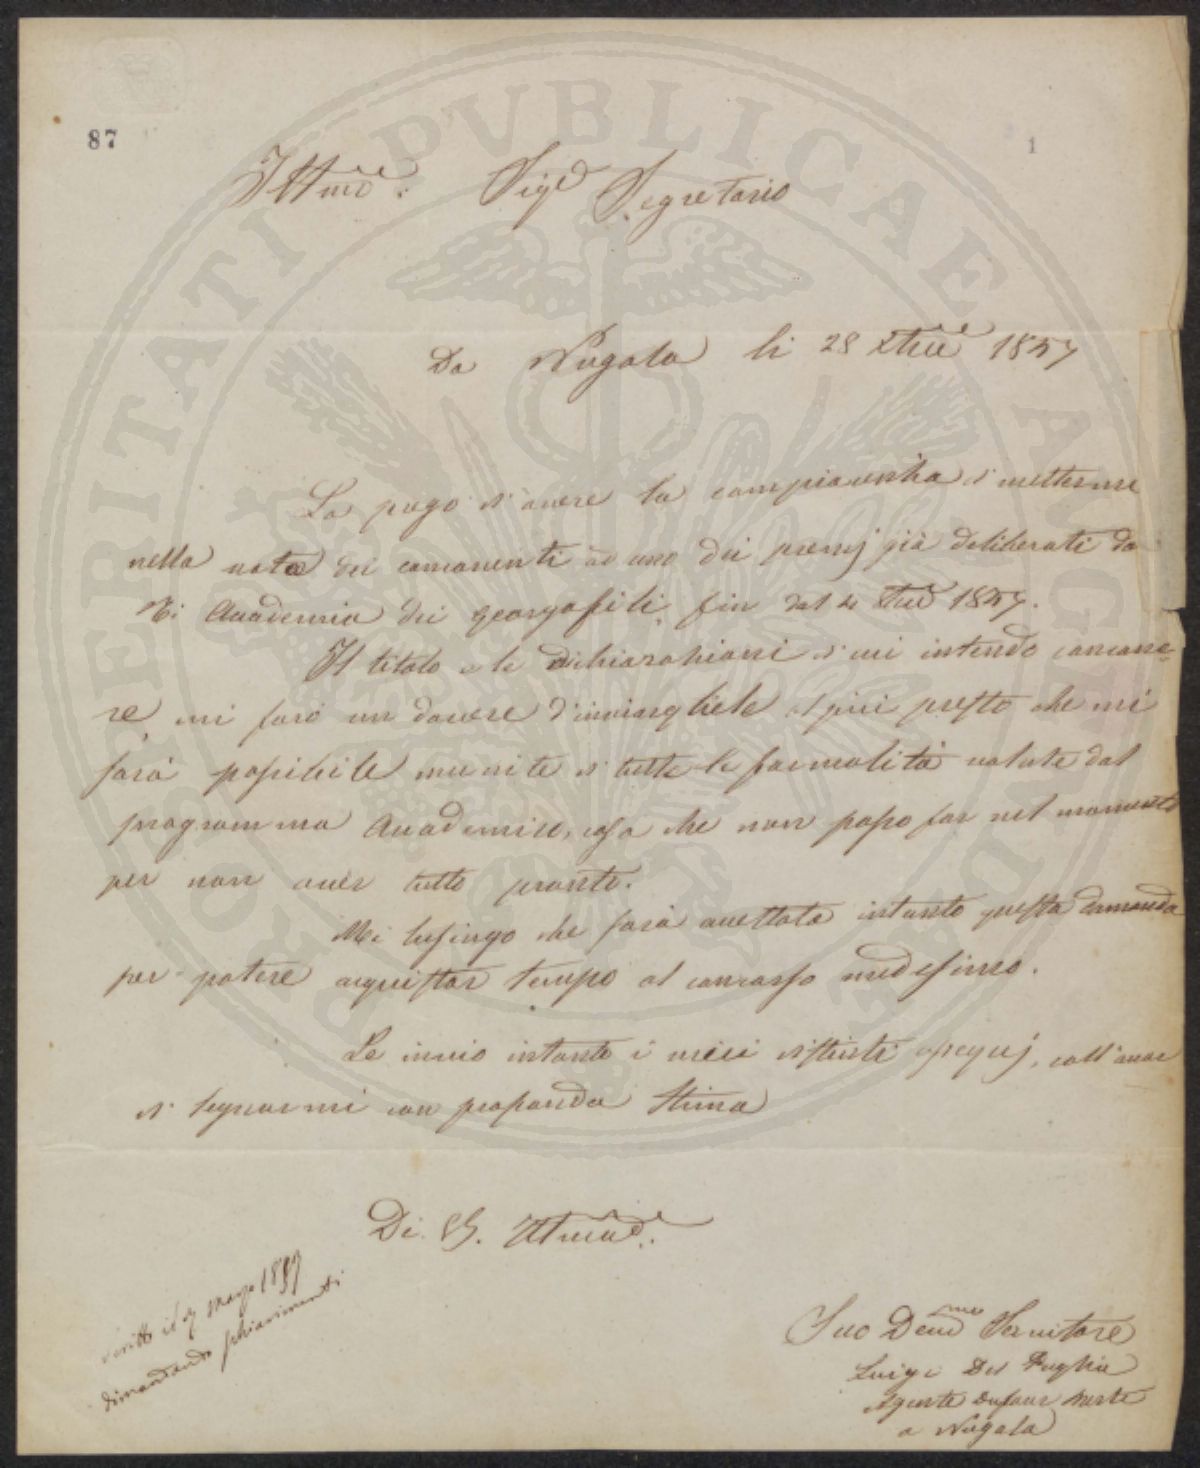 87
1
PROSPERITATI PVBLICAE AVGENDAE
Illmo: Sigr Segretario
Da Nugola li 28 1857
La prego d'avere la compiacenza di mettermi
nella nota dei concorrenti ad uno dei premj già deliberati da
Accademia dei georgofili, fin dal 4 1857.
Il titolo e le dichiarazioni di cui intendo concorre-
re, mi farò un dovere d'inviargliele al più presto che mi
sarà possibile munite di tutte le formalità volute dal
programma Accademico, cosa che non posso far nel momento
per non aver tutto pronto.
Mi lusingo che sarà accettata intanto questa domanda
per potere acquistar tempo al concorso medesimo.
Le invio intanto i miei distinti ossequj, coll'onor
di segnarmi con profonda stima
Di S. Illma.
Suo Devmo Servitore
Luigi Del Puglia
Agente
a Nugola
Scritto il dì 7 Marzo 1857
dimandando schiarimenti